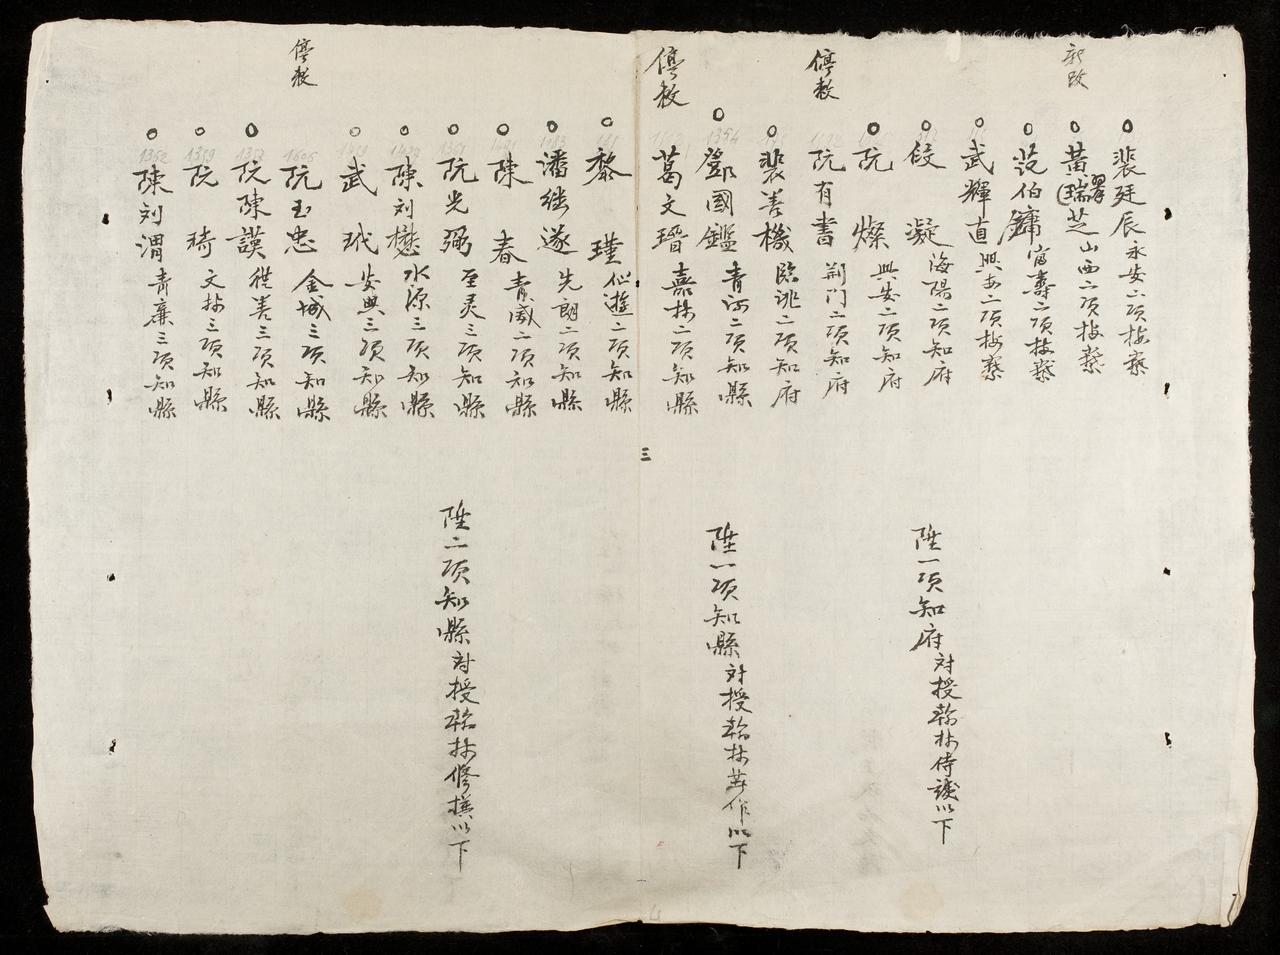 裴廷辰永安二項按察
新改
黃瑞芝山西二項按察
耀
范伯鏞富壽二項按察
武輝直興安二項按察
段凝海陽二項知府
阮燦興安二項知府
停教
阮有書荊门二項知府
裴善機臨洮二項知府
鄧國鑑青河二項知縣
停教
葛文瑨嘉林二項知縣
黎瑾仙遊二項知縣
潘継遂先朗二項知縣
陳春青威二項知縣
阮光弼至灵三項知縣
陳刘懋水源三項知縣
武玳安興三項知縣
停教
阮玉忠金城三項知縣
阮陳謨從善三項知縣
阮琦文林三項知縣
陳刘渭青廉三項知縣
陞一項知府对授翰林侍講以下
陞一項知縣对授翰林著作以下
陞二項知縣对授翰林修撰以下
三